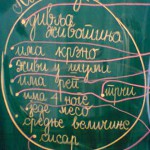 дивља
животиња
има крзно
живи у шуми
има реп
трчи
има 4 ноге
једе месо
средње величине
сисар